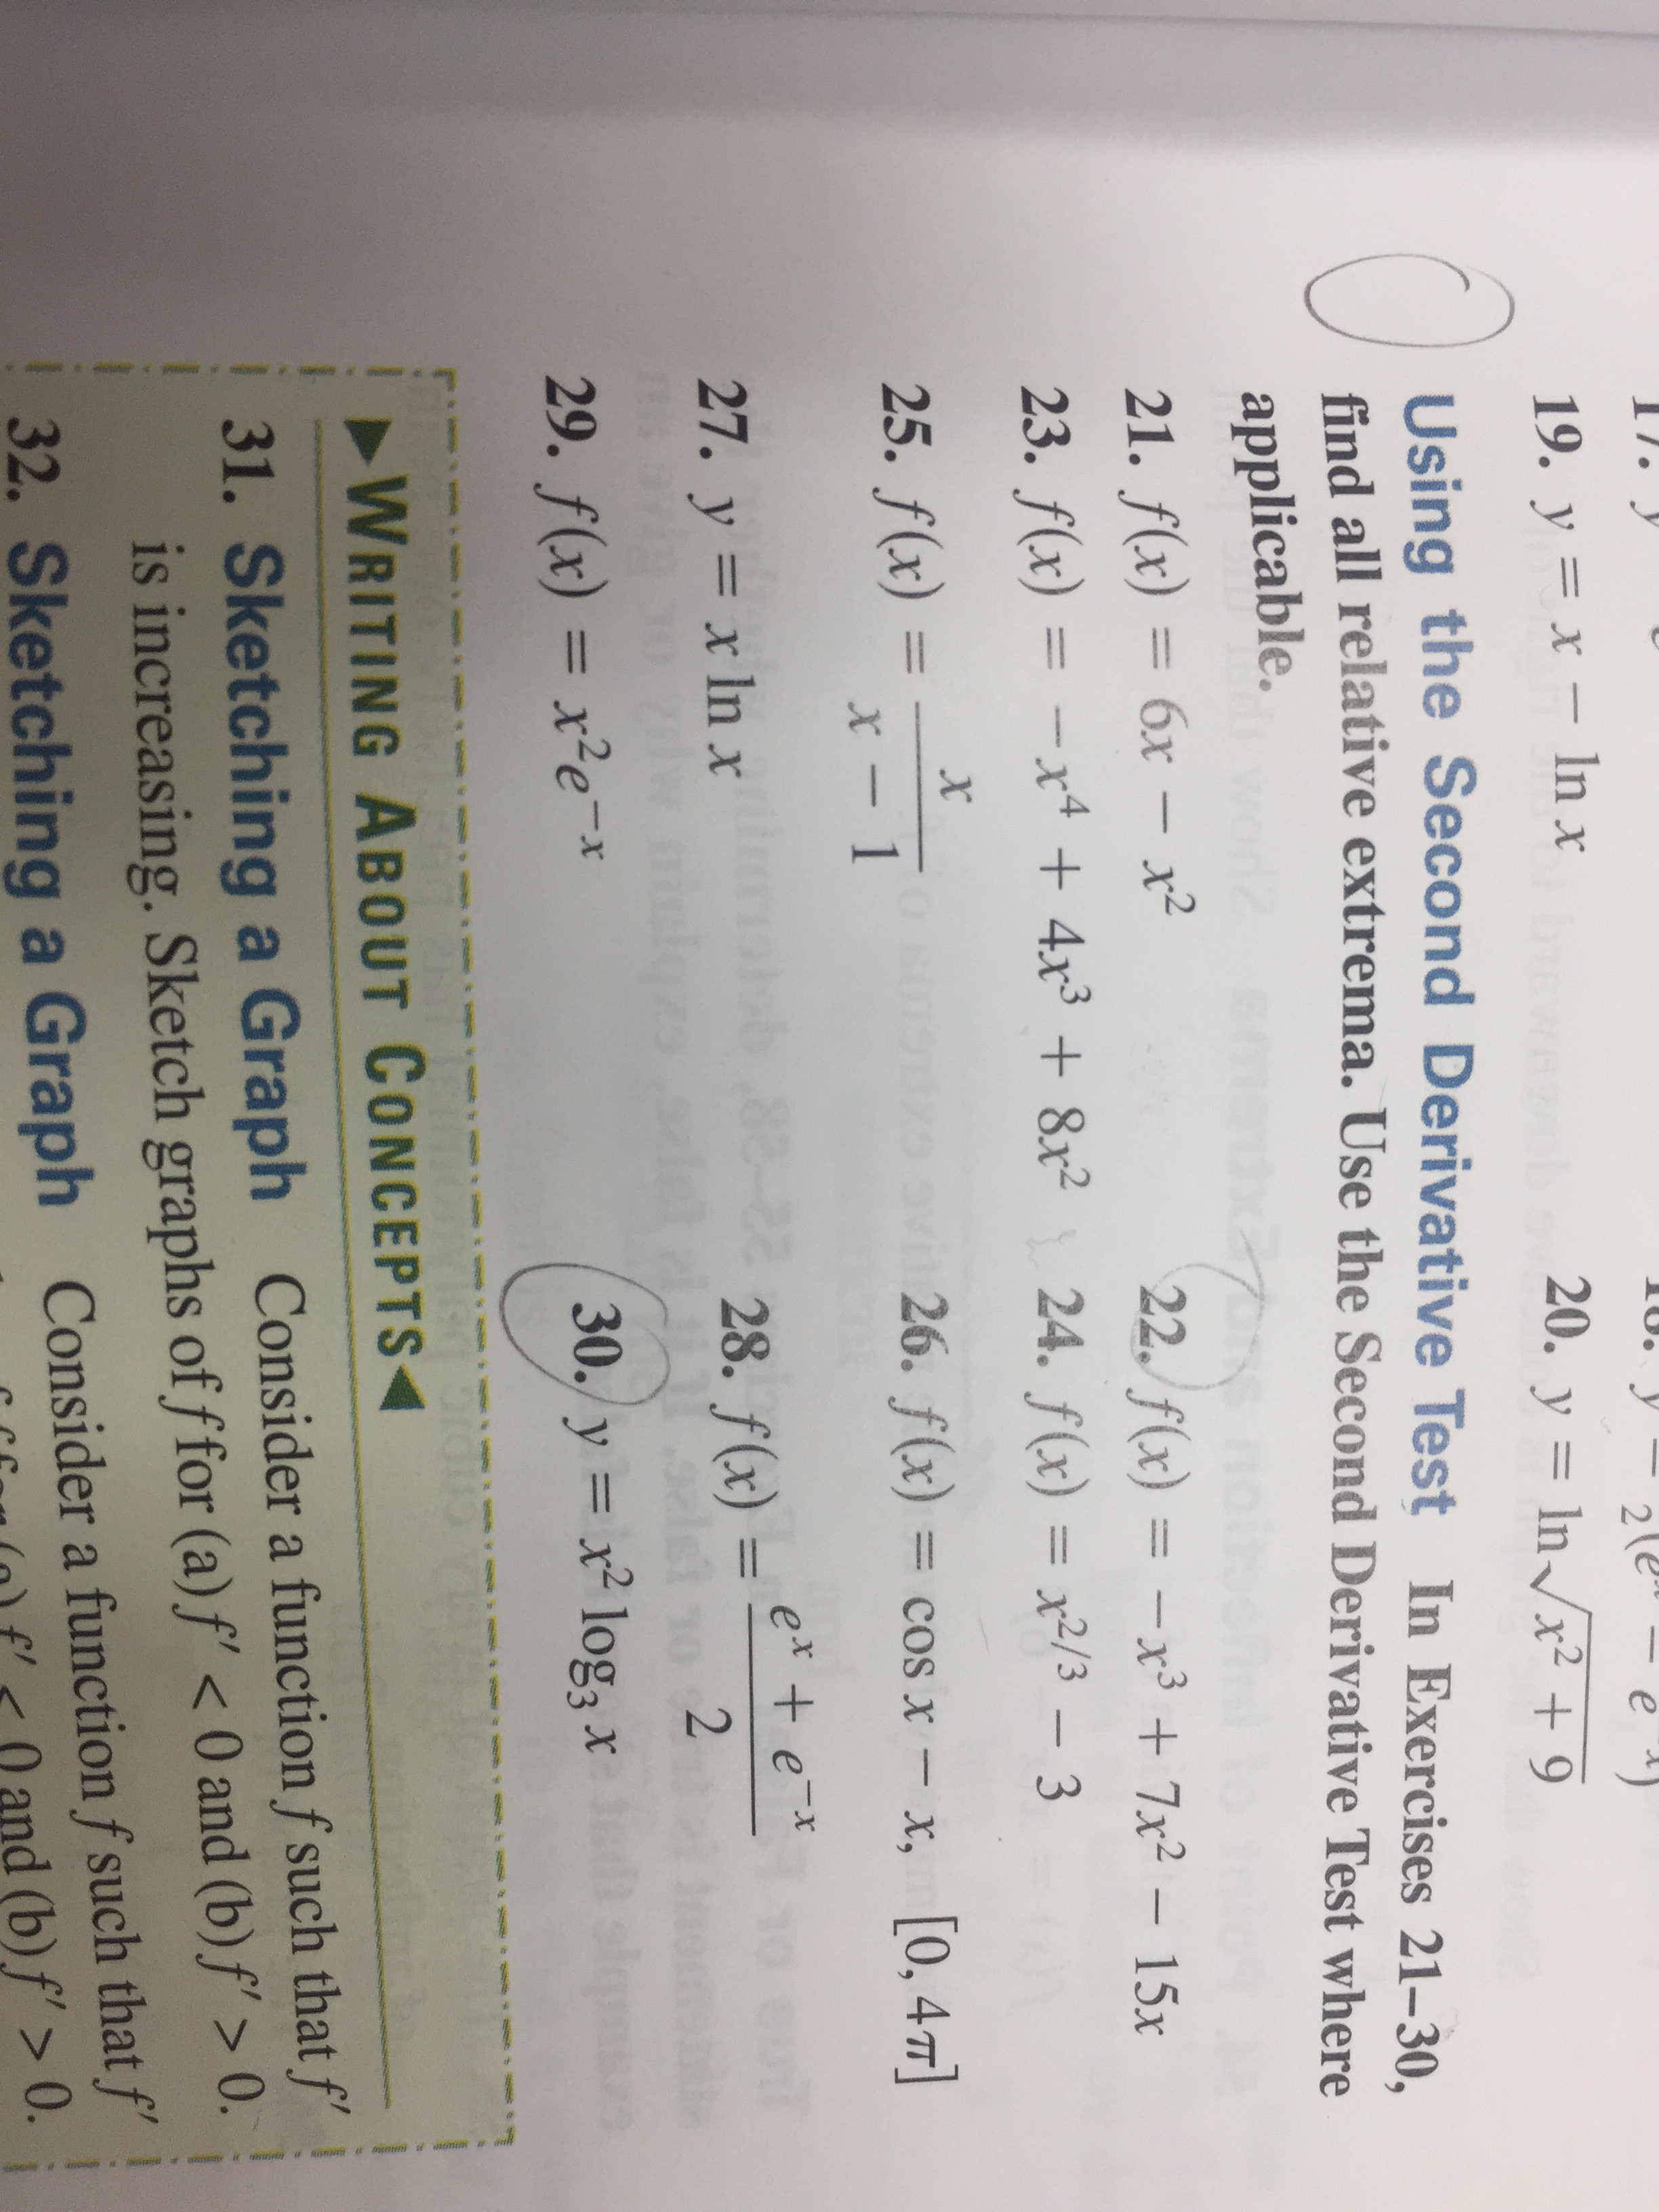 17. y
19. y = x − ln x
20. y = ln√(x² + 9)
Using the Second Derivative Test In Exercises 21–30,
find all relative extrema. Use the Second Derivative Test where
applicable.
21. f(x) = 6x − x²
22. f(x) = −x³ + 7x² − 15x
23. f(x) = −x⁴ + 4x³ + 8x²
24. f(x) = x^(2/3) − 3
25. f(x) = x/(x − 1)
26. f(x) = cos x − x, [0, 4π]
27. y = x ln x
28. f(x) = (eˣ + e⁻ˣ)/2
29. f(x) = x²e⁻ˣ
30. y = x² log₃ x
▶WRITING ABOUT CONCEPTS◀
31. Sketching a Graph Consider a function f such that f′
is increasing. Sketch graphs of f for (a) f′ < 0 and (b) f′ > 0.
32. Sketching a Graph Consider a function f such that f′
f for (a) f′ < 0 and (b) f′ > 0.